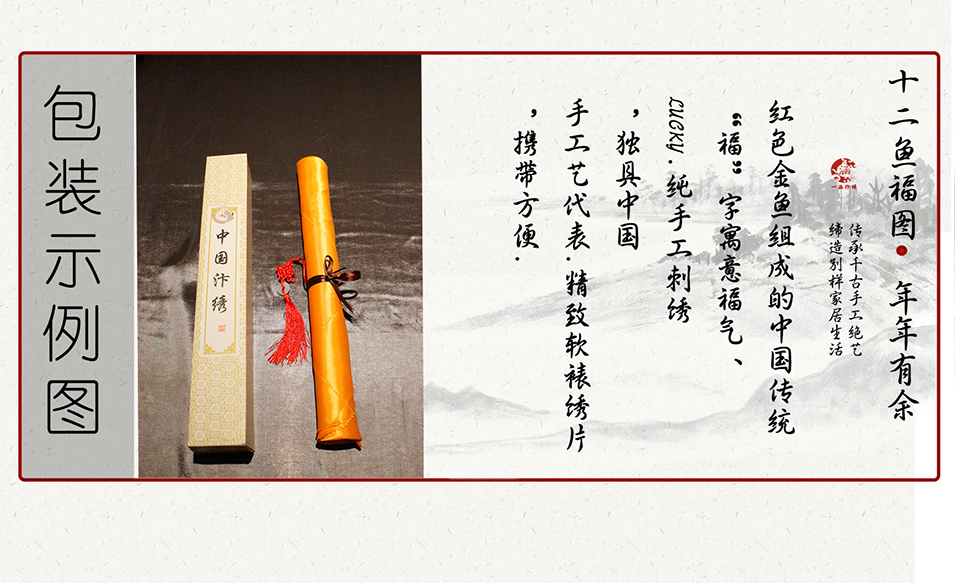 包装示例图
中国汴绣
十二鱼福图 年年有余
传承千古手工绝艺
缔造别样家居生活
红色金鱼组成的中国传统
“福”字寓意福气、
LUCKY.纯手工刺绣
，独具中国
手工艺代表.精致软裱绣片
，携带方便.